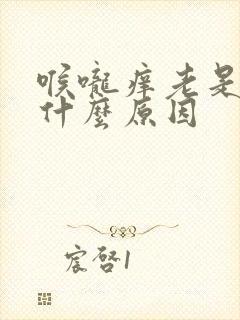 喉嚨痒老是
什麼原因
宸啓1